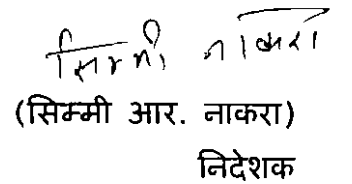 सिम्मी नाकरा
(सिम्मी आर. नाकरा)
निदेशक